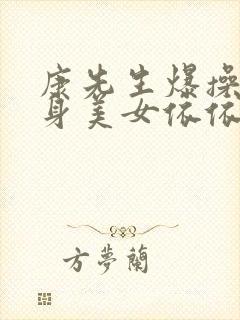 康先生爆操
身美女依依
方夢蘭